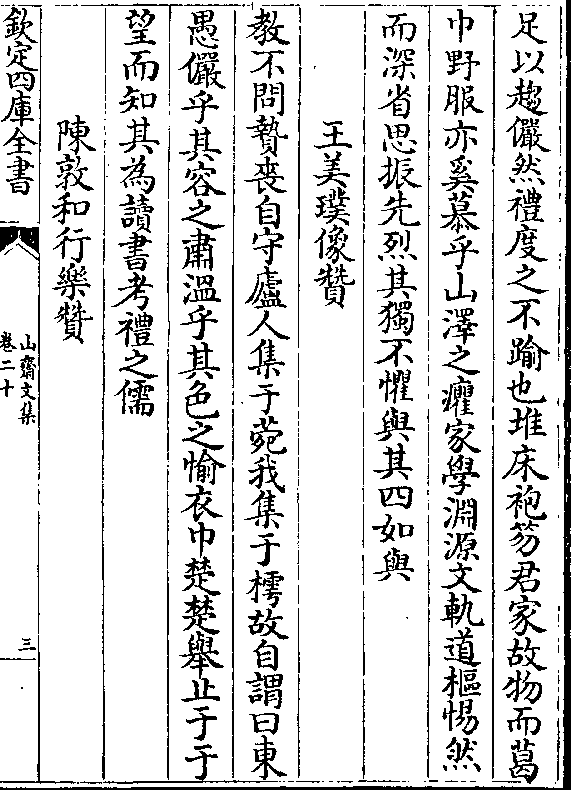 足以趨儼然禮度之不踰也堆床袍笏君家故物而葛
巾野服亦奚慕乎山澤之癯家學淵源文軌道樞惕然
而深省思振先烈其獨不懼與其四如與
王美璞像贊
教不問贄喪自守廬人集于菀我集于樗故自謂曰東
愚儼乎其容之肅溫乎其色之愉衣巾楚楚舉止于于
望而知其為讀書考禮之儒
陳敦和行樂贊
欽定四庫全書
山齋文集
卷二十
三